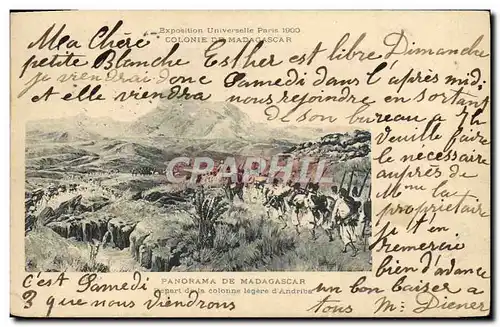 Exposition Universelle Paris 1900
COLONIE DE MADAGASCAR
Ma Chère
petite Blanche Esther est libre Dimanche
je viendrai donc Samedi dans l'après midi
et elle viendra nous rejoindre en sortant
de son bureau à 7h
Veuille faire
le nécessaire
auprès de
Mme la
proprietaire
je t'en
remercie
bien d'avance
CPARAMA
PANORAMA DE MADAGASCAR
Départ de la colonne légère d'Andriba
C'est Samedi
3 que nous viendrons
un bon baiser a
tous M. Diener